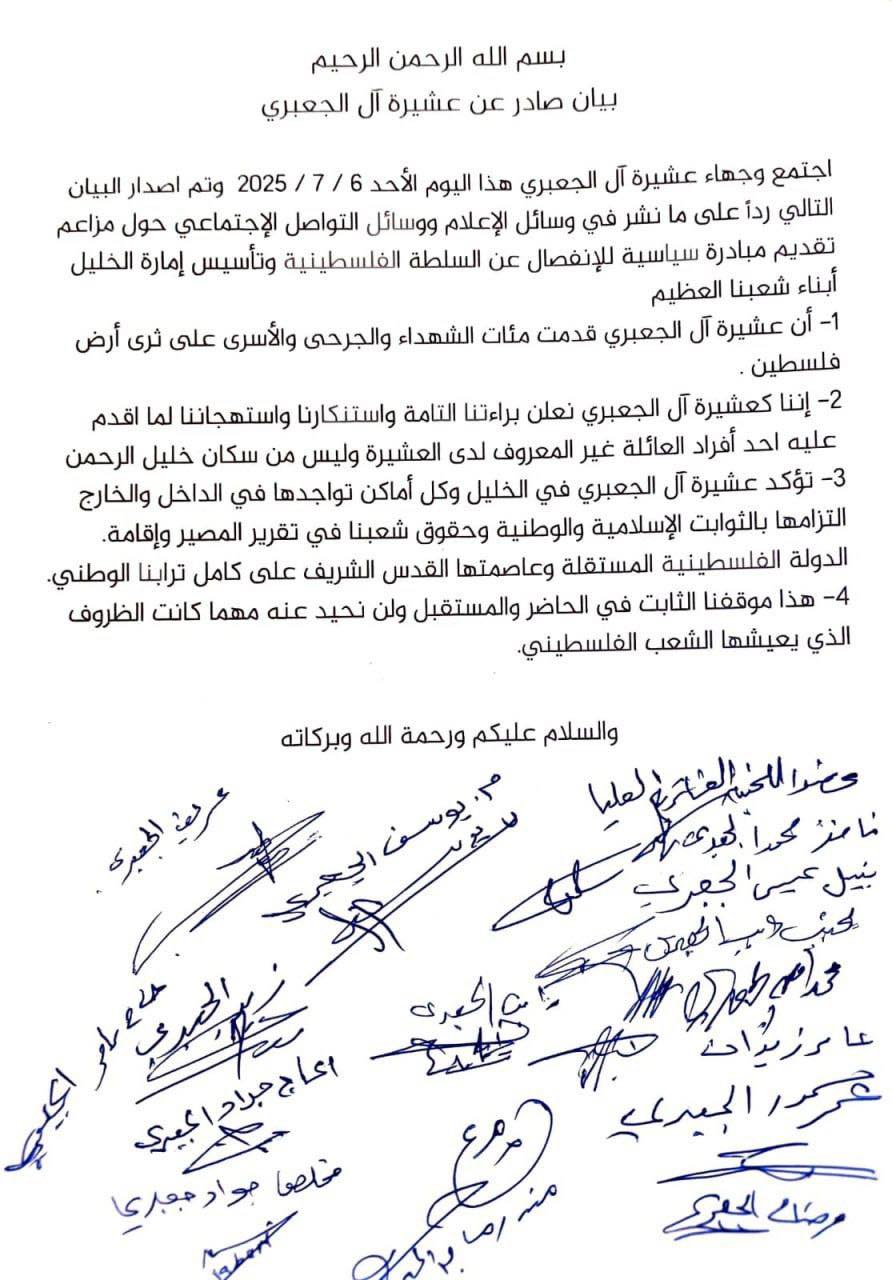 بسم الله الرحمن الرحيم
بيان صادر عن عشيرة آل الجعبري
اجتمع وجهاء عشيرة آل الجعبري هذا اليوم الأحد 6 / 7 / 2025 وتم اصدار البيان
التالي رداً على ما نشر في وسائل الإعلام ووسائل التواصل الإجتماعي حول مزاعم
تقديم مبادرة سياسية للإنفصال عن السلطة الفلسطينية وتأسيس إمارة الخليل
أبناء شعبنا العظيم
1- أن عشيرة آل الجعبري قدمت مئات الشهداء والجرحى والأسرى على ثرى أرض
فلسطين .
2- إننا كعشيرة آل الجعبري نعلن براءتنا التامة واستنكارنا واستهجاننا لما اقدم
عليه احد أفراد العائلة غير المعروف لدى العشيرة وليس من سكان خليل الرحمن
3- تؤكد عشيرة آل الجعبري في الخليل وكل أماكن تواجدها في الداخل والخارج
التزامها بالثوابت الإسلامية والوطنية وحقوق شعبنا في تقرير المصير وإقامة.
الدولة الفلسطينية المستقلة وعاصمتها القدس الشريف على كامل ترابنا الوطني.
4- هذا موقفنا الثابت في الحاضر والمستقبل ولن نحيد عنه مهما كانت الظروف
الذي يعيشها الشعب الفلسطيني.
والسلام عليكم ورحمة الله وبركاته
العليا
م. يوسف الجعبري
الجعبري
نبيل عيسى الجعبري
الجعبري
عامر زيدان
الجعبري
الحاج جواد الجعبري
جواد جعبري
الجعبري